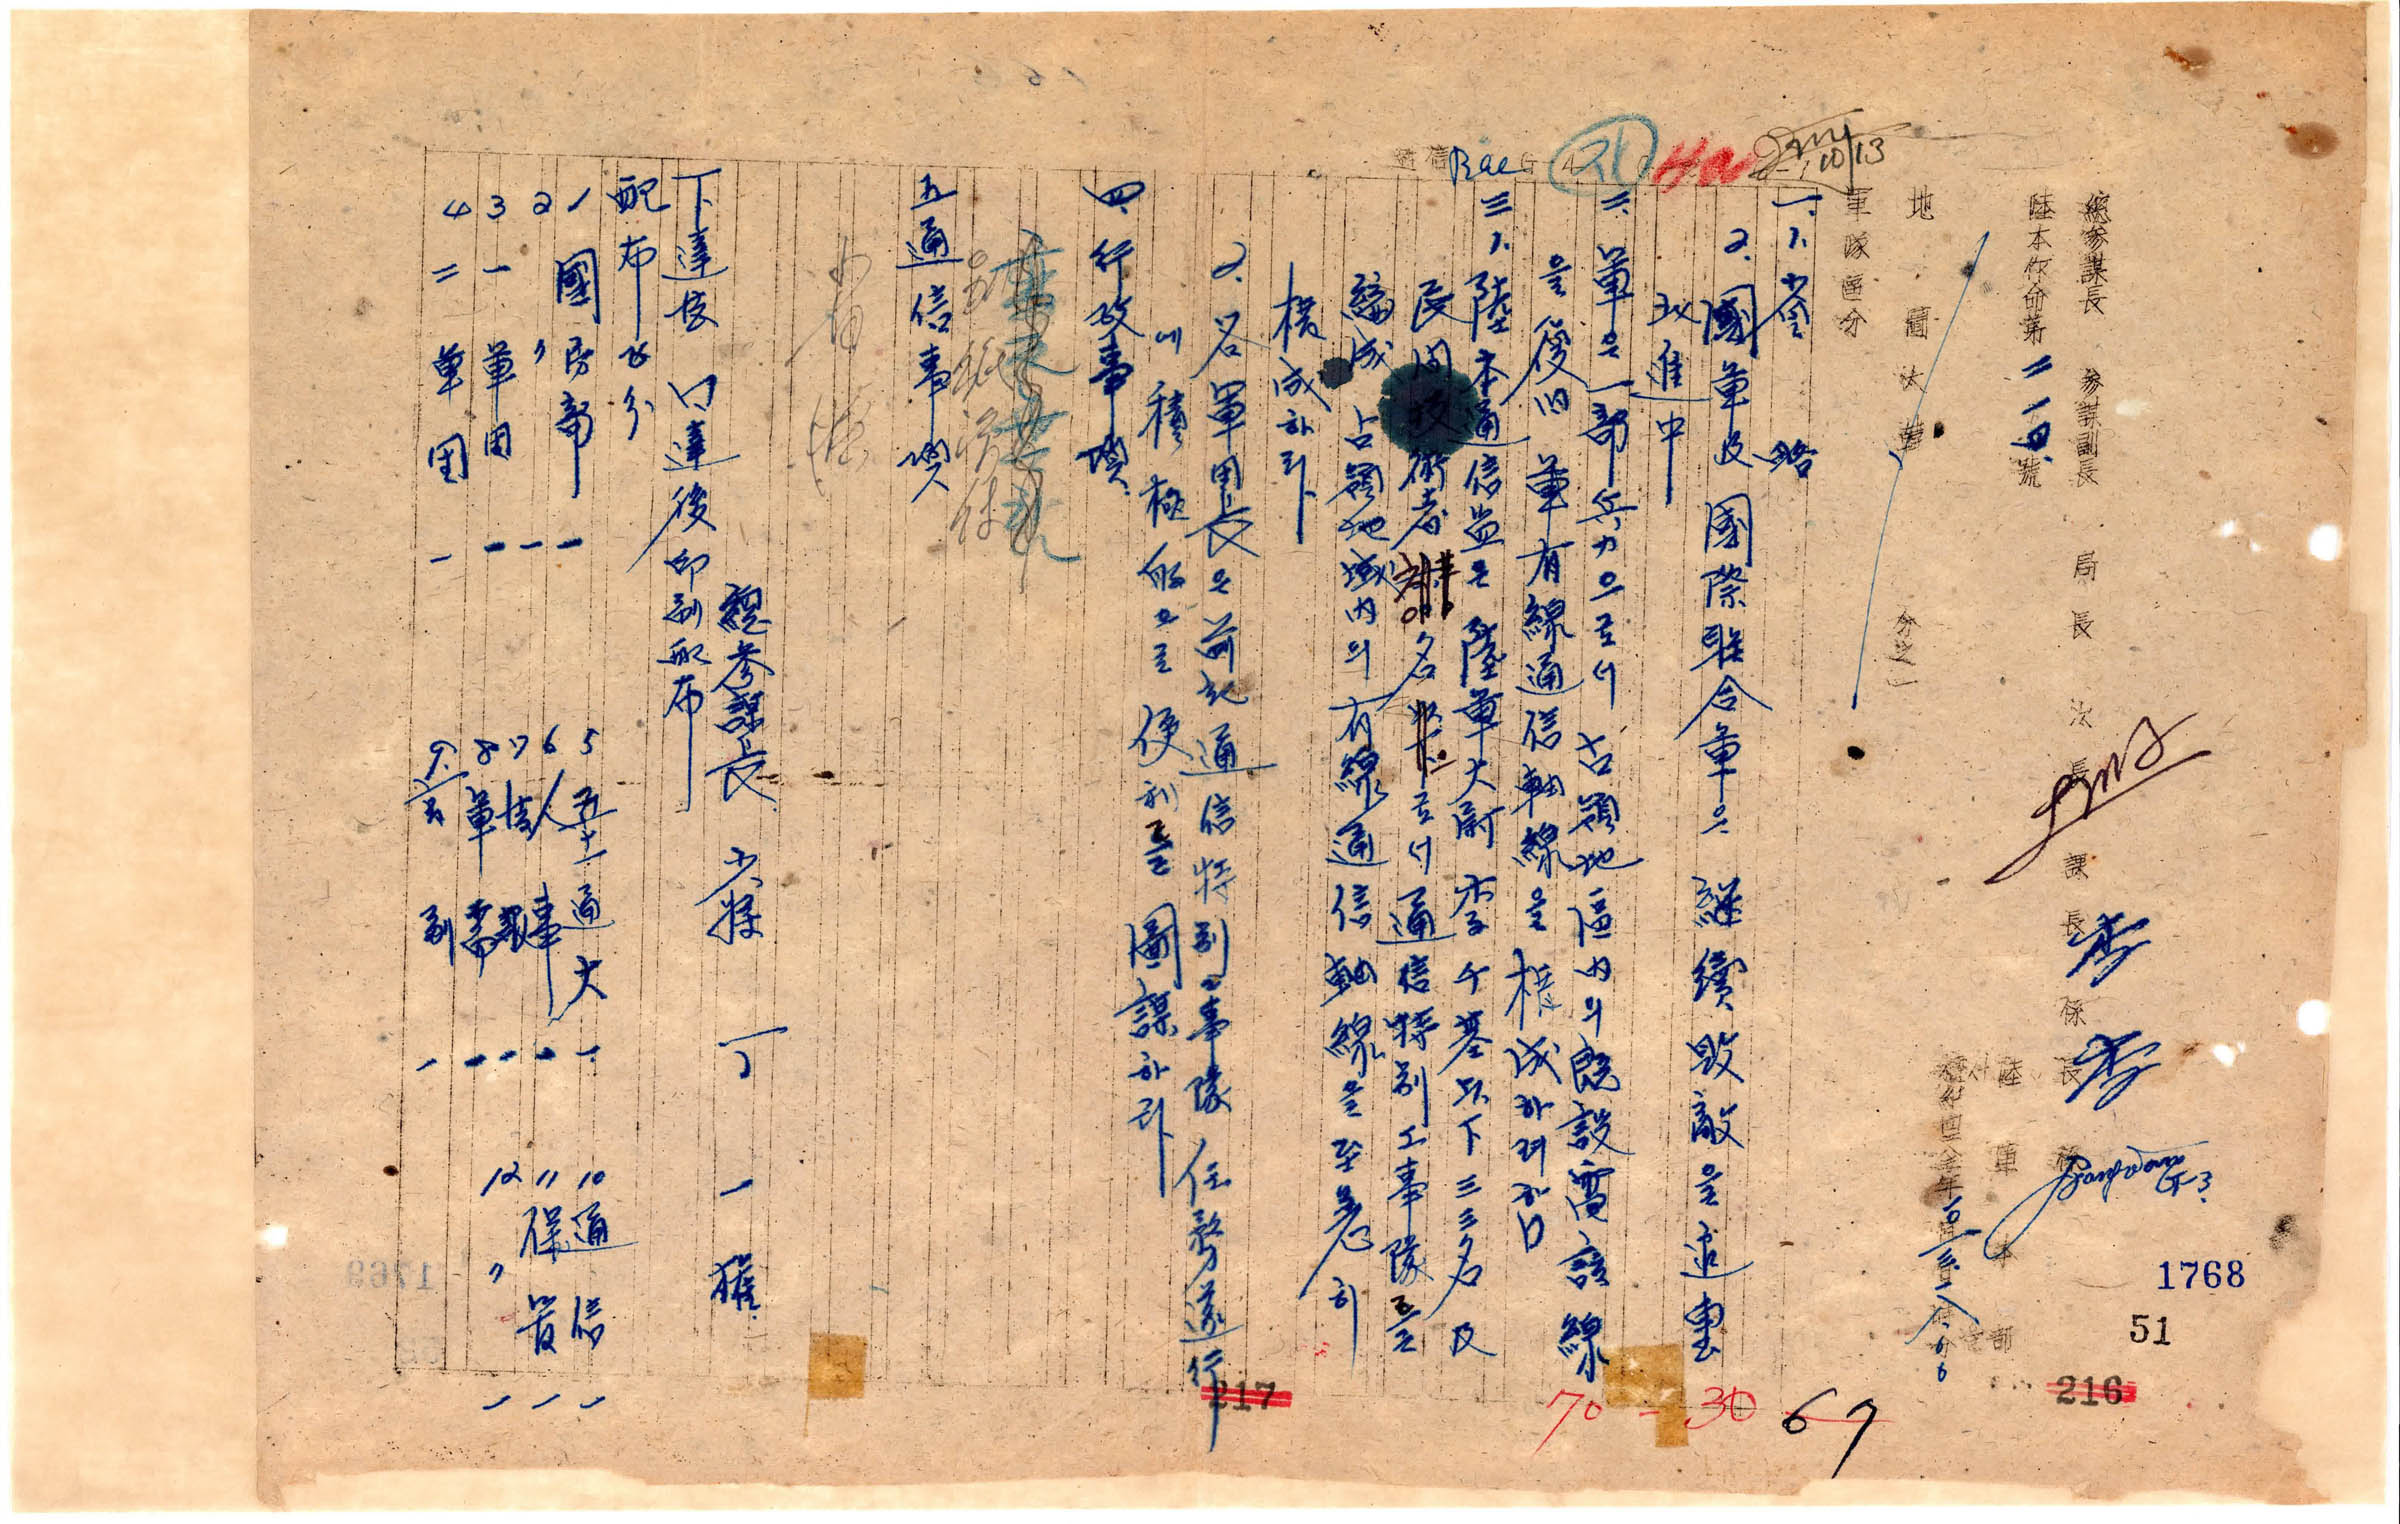 總參謀長 參謀副長 局長 次長 課長 係長
陸本作命第二一四號
陸軍本部
檀紀四二八三年
地圖
軍隊區分
一、1、省略
2、國軍及國際聯合軍은 繼續 毁敵을 追擊
北進中
二、軍은 一部 兵力으로서 占領地區內의 旣設電話線
을 復旧 軍有線通信軸線을 構成하려함
三、1、陸本通信監은 陸軍大尉 李千基以下三三名及
民間技術者 名 로서 通信特別工事隊를
編成 占領地域內의 有線通信軸線을 至急히
構成하라
2、各軍團長은 前記通信特別工事隊 任務遂行
에 積極的으로 便利를 圖謀하라
四、行政事項
五 通信事項
省略
總參謀長 少將 丁一權
下達法 口達後印刷配布
配布區分
1 國防部 一
2 〃 一
3 一軍團 一
4 二軍團 一
5 五十一通大 一
6 人事 一
7 情報 一
8 軍需 一
9 高副 一
10 通信 一
11 保管 一
12 〃 一
Bae
10/13
G3
1768
51
216
217
70 - 30
67